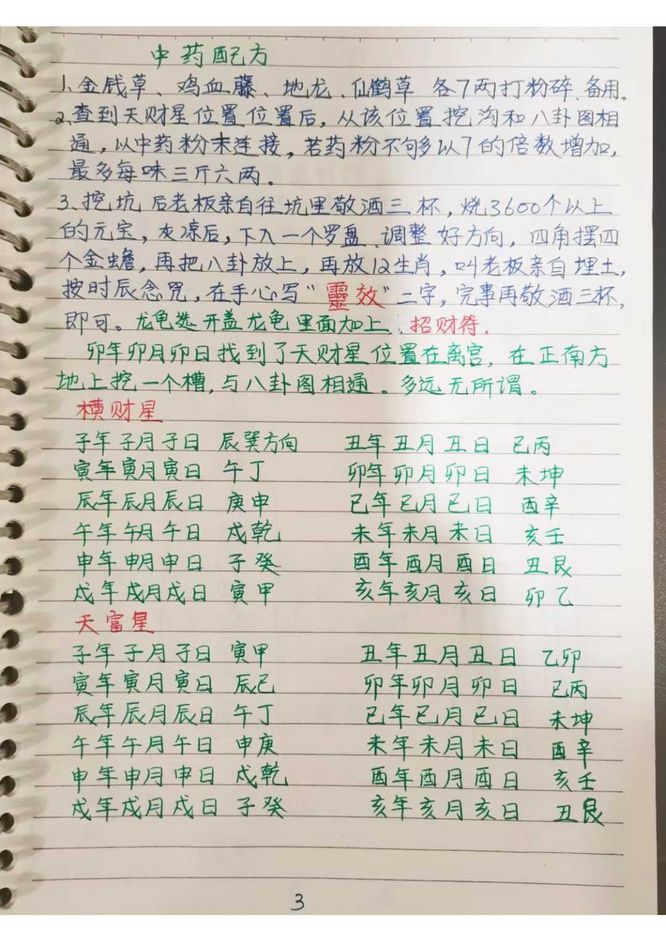 中药配方
1、金钱草、鸡血藤、地龙、仙鹤草 各7两打粉碎、备用。
2、查到天财星位置位置后,从该位置挖沟和八卦图相
通,以中药粉末连接,若药粉不够多以7的倍数增加,
最多每味三斤六两。
3、挖坑后老板亲自往坑里敬酒三杯,烧3600个以上
的元宝,灰凉后,下入一个罗盘、调整好方向,四角摆四
个金蟾,再把八卦放上,再放12生肖,叫老板亲自埋土,
按时辰念咒,在手心写“靈效”二字,完事再敬酒三杯,
即可。龙龟选开盖龙龟里面加上、招财符.
卯年卯月卯日找到了天财星位置在离宫,在正南方
地上挖一个槽,与八卦图相通。多远无所谓。
横财星
子年子月子日 辰巽方向 丑年丑月丑日 巳丙
寅年寅月寅日 午丁 卯年卯月卯日 未坤
辰年辰月辰日 庚申 巳年巳月巳日 酉辛
午年午月午日 戍乾 未年未月未日 亥壬
申年申月申日 子癸 酉年酉月酉日 丑艮
戍年戍月戍日 寅甲 亥年亥月亥日 卯乙
天富星
子年子月子日 寅甲 丑年丑月丑日 乙卯
寅年寅月寅日 辰巳 卯年卯月卯日 巳丙
辰年辰月辰日 午丁 巳年巳月巳日 未坤
午年午月午日 申庚 未年未月未日 酉辛
申年申月申日 戍乾 酉年酉月酉日 亥壬
戍年戍月戍日 子癸 亥年亥月亥日 丑艮
3